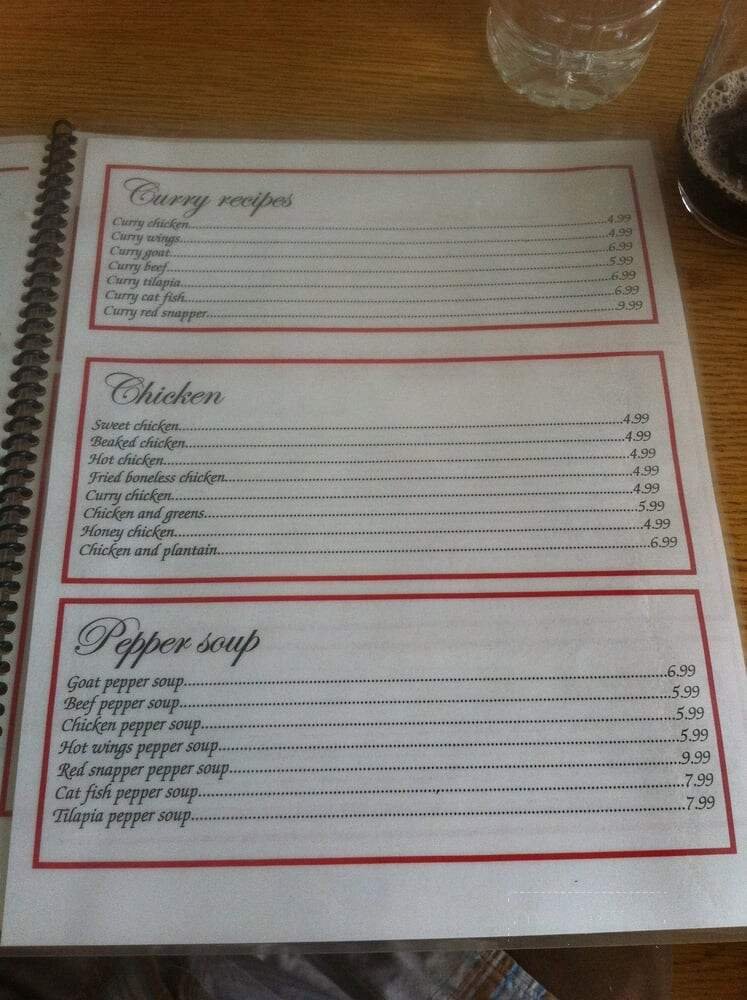 Curry recipes
Curry chicken 4.99
Curry wings 4.99
Curry goat 6.99
Curry beef 5.99
Curry tilapia 6.99
Curry cat fish 6.99
Curry red snapper 9.99
Chicken
Sweet chicken 4.99
Beaked chicken 4.99
Hot chicken 4.99
Fried boneless chicken 4.99
Curry chicken 4.99
Chicken and greens 5.99
Honey chicken 4.99
Chicken and plantain 6.99
Pepper soup
Goat pepper soup 6.99
Beef pepper soup 5.99
Chicken pepper soup 5.99
Hot wings pepper soup 5.99
Red snapper pepper soup 9.99
Cat fish pepper soup 7.99
Tilapia pepper soup 7.99